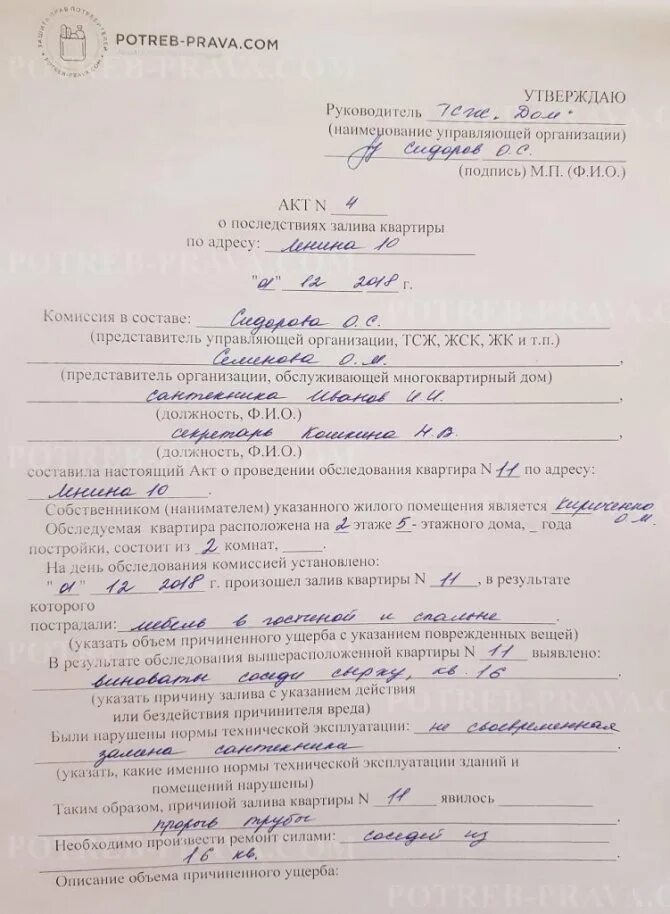 ЗАЩИТА ПРАВ ПОТРЕБИТЕЛЕЙ
POTREB-PRAVA.COM
POTREB-PRAVA.COM
УТВЕРЖДАЮ
Руководитель ТСЖ "Дом"
(наименование управляющей организации)
Сидоров О.С.
(подпись) М.П. (Ф.И.О.)
АКТ N 4
о последствиях залива квартиры
по адресу: Ленина 10
"01" 12 2018 г.
Комиссия в составе: Сидорова О.С.
(представитель управляющей организации, ТСЖ, ЖСК, ЖК и т.п.)
Семенова О.М.,
(представитель организации, обслуживающей многоквартирный дом)
сантехника Иванов И.И.,
(должность, Ф.И.О.)
секретарь Кошкина Н.В.,
(должность, Ф.И.О.)
составила настоящий Акт о проведении обследования квартира N 11 по адресу:
Ленина 10.
Собственником (нанимателем) указанного жилого помещения является Кириченко О.М.
Обследуемая квартира расположена на 2 этаже 5- этажного дома, _ года
постройки, состоит из 2 комнат, _____.
На день обследования комиссией установлено:
"01" 12 2018 г. произошел залив квартиры N 11, в результате
которого
пострадали: мебель в гостиной и спальне.
(указать объем причиненного ущерба с указанием поврежденных вещей)
В результате обследования вышерасположенной квартиры N 11 выявлено:
виноваты соседи сверху, кв. 16
(указать причину залива с указанием действия
или бездействия причинителя вреда)
Были нарушены нормы технической эксплуатации: не своевременная
замена сантехники.
(указать, какие именно нормы технической эксплуатации зданий и
помещений нарушены)
Таким образом, причиной залива квартиры N 11 явилось
прорыв трубы.
Необходимо произвести ремонт силами: соседей из
16 кв.
Описание объема причиненного ущерба: